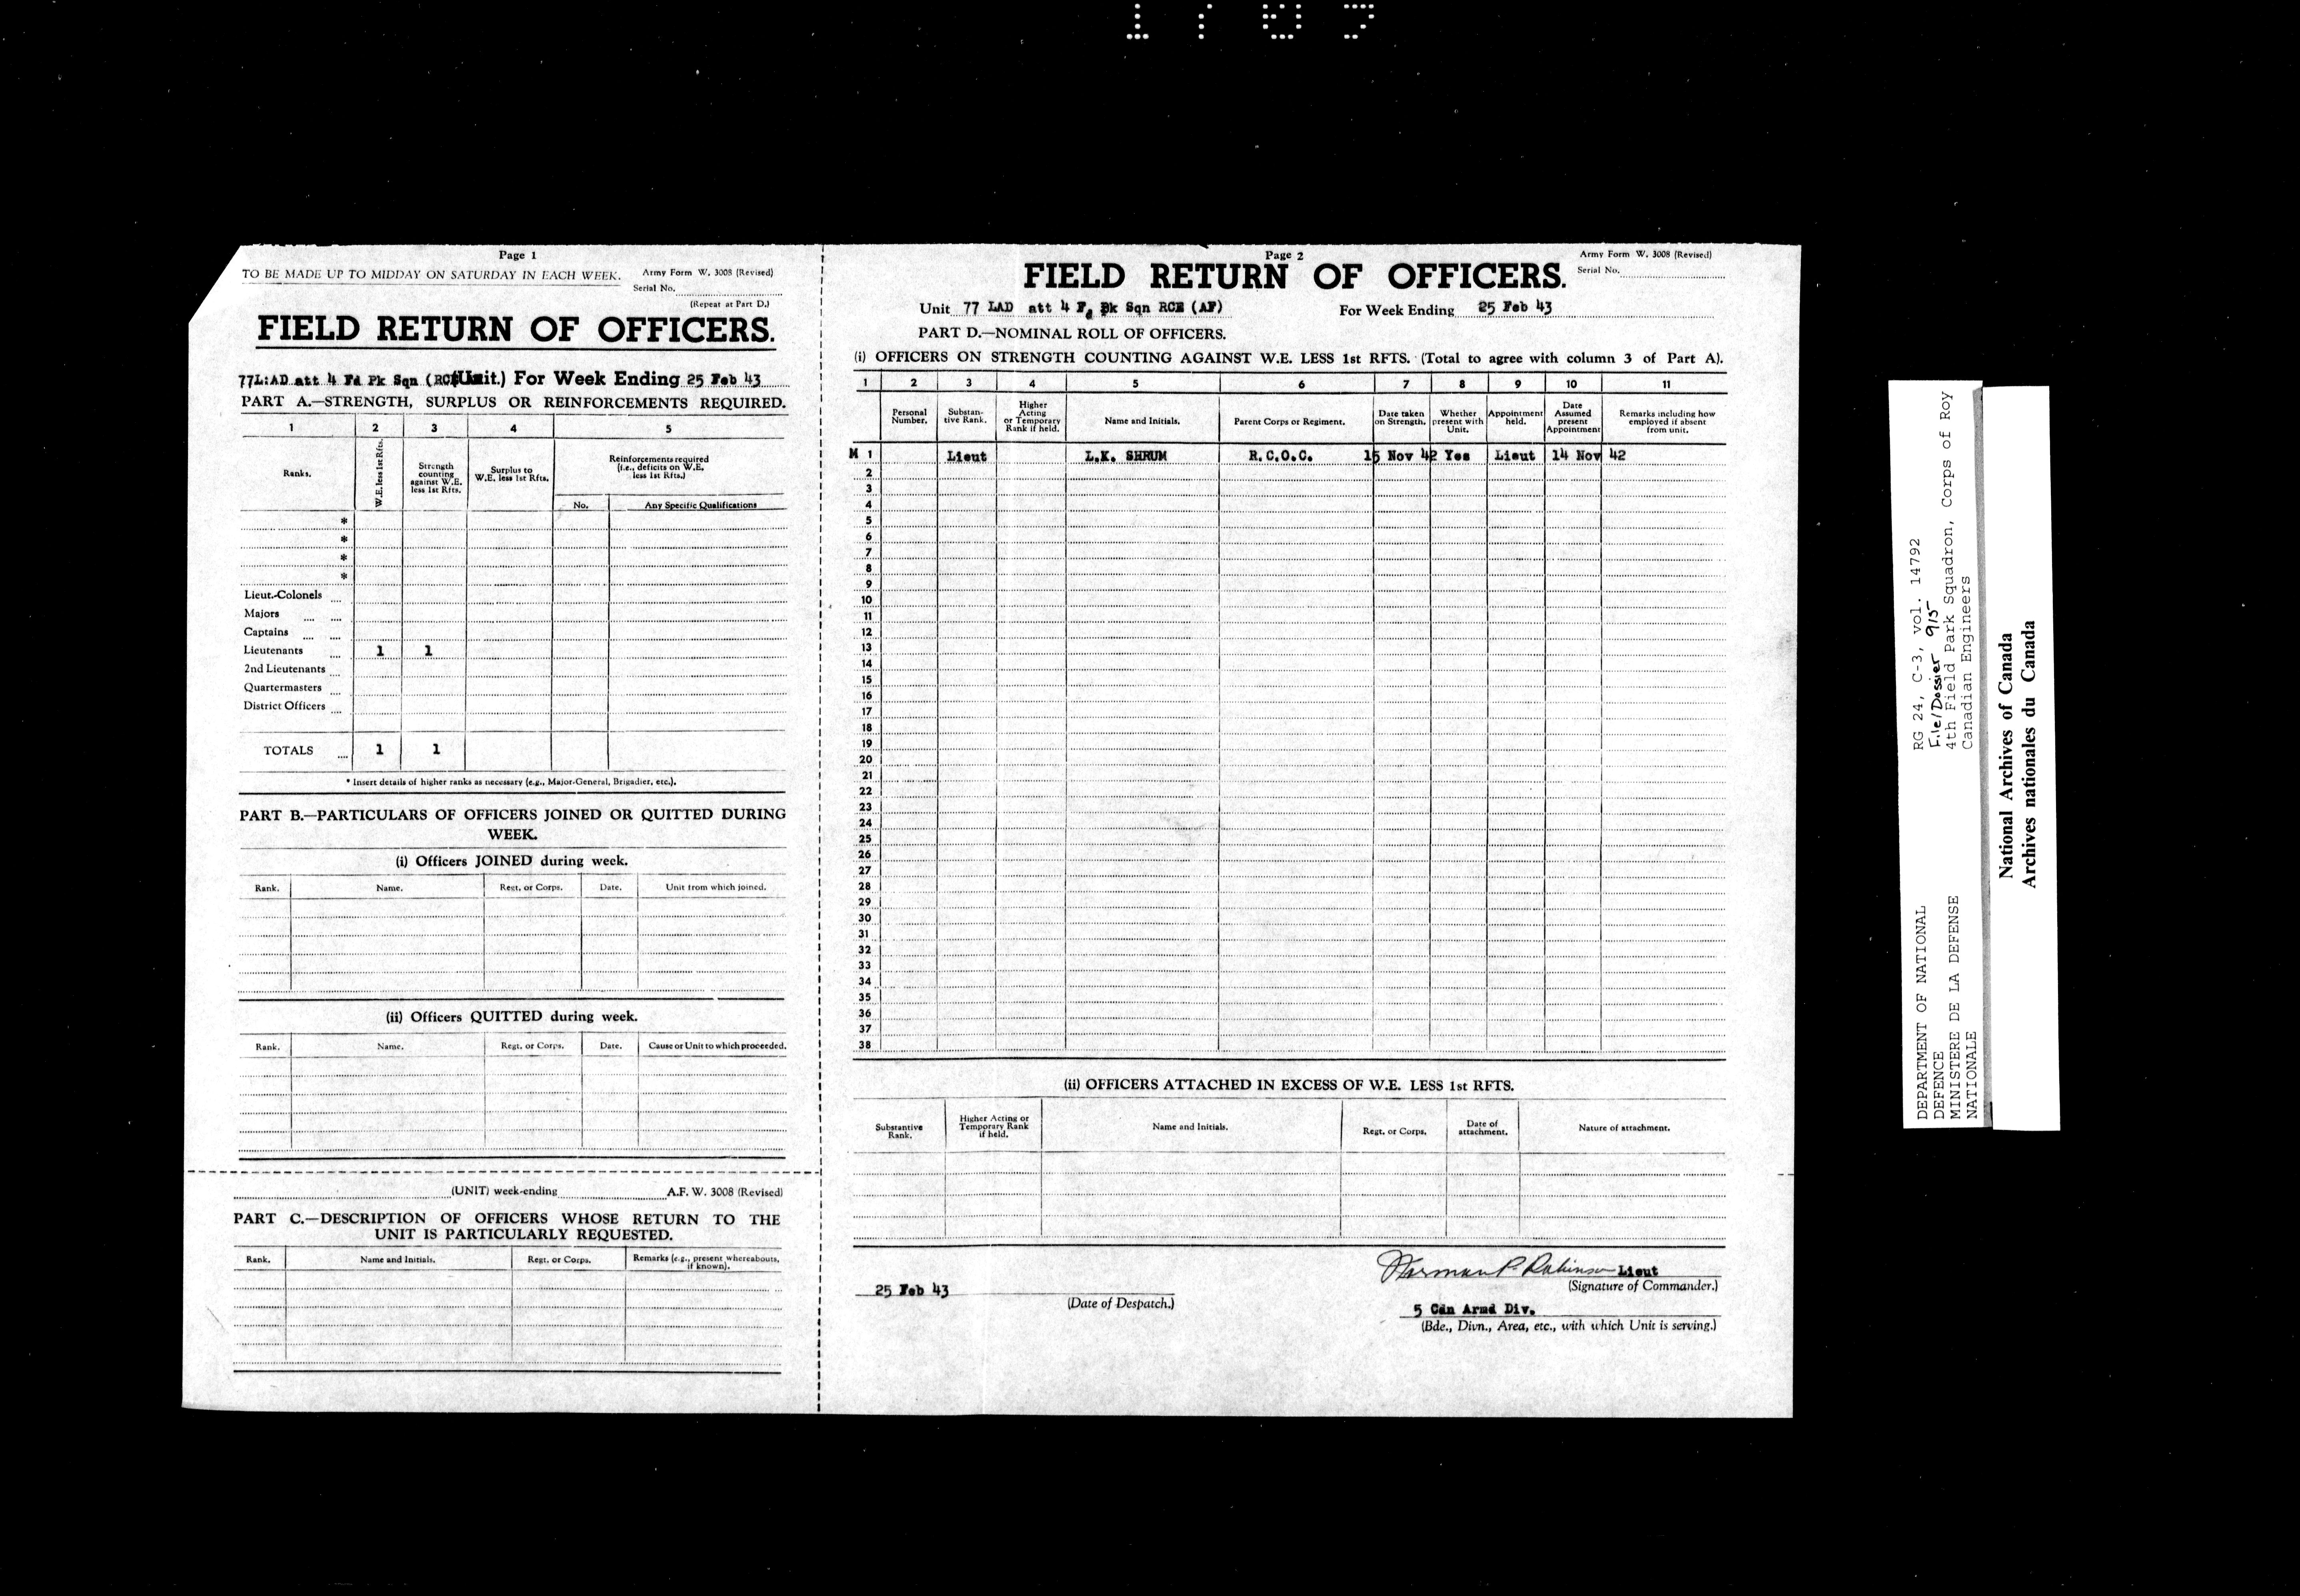 Page 1
TO BE MADE UP TO MIDDAY ON SATURDAY IN EACH WEEK.
Army Form W. 3008 (Revised)
Serial No.
(Repeat at Part D.)
FIELD RETURN OF OFFICERS.
77L:AD att 4 Fd Pk Sqn (RCE Unit.) For Week Ending 25 Feb 43
PART A.—STRENGTH, SURPLUS OR REINFORCEMENTS REQUIRED.
1 2 3 4 5
Ranks.
W.E. less 1st Rfts.
Strength counting against W.E. less 1st Rfts.
Surplus to W.E. less 1st Rfts.
Reinforcements required (i.e., deficits on W.E. less 1st Rfts.)
No. Any Specific Qualifications
*
*
*
*
Lieut.-Colonels
Majors
Captains
Lieutenants 1 1
2nd Lieutenants
Quartermasters
District Officers
TOTALS 1 1
* Insert details of higher ranks as necessary (e.g., Major-General, Brigadier, etc.).
PART B.—PARTICULARS OF OFFICERS JOINED OR QUITTED DURING
WEEK.
(i) Officers JOINED during week.
Rank. Name. Regt. or Corps. Date. Unit from which joined.
(ii) Officers QUITTED during week.
Rank. Name. Regt. or Corps. Date. Cause or Unit to which proceeded.
(UNIT) week-ending A.F. W. 3008 (Revised)
PART C.—DESCRIPTION OF OFFICERS WHOSE RETURN TO THE
UNIT IS PARTICULARLY REQUESTED.
Rank. Name and Initials. Regt. or Corps. Remarks (e.g., present whereabouts, if known).
Page 2
Army Form W. 3008 (Revised)
FIELD RETURN OF OFFICERS.
Serial No.
Unit 77 LAD att 4 F, Pk Sqn RCE (AF) For Week Ending 25 Feb 43
PART D.—NOMINAL ROLL OF OFFICERS.
(i) OFFICERS ON STRENGTH COUNTING AGAINST W.E. LESS 1st RFTS. (Total to agree with column 3 of Part A).
1 2 3 4 5 6 7 8 9 10 11
Personal Number.
Substantive Rank.
Higher Acting or Temporary Rank if held.
Name and Initials.
Parent Corps or Regiment.
Date taken on Strength.
Whether present with Unit.
Appointment held.
Date Assumed present Appointment
Remarks including how employed if absent from unit.
M 1 Lieut L.K. SHRUM R.C.O.C. 15 Nov 42 Yes Lieut 14 Nov 42
2
3
4
5
6
7
8
9
10
11
12
13
14
15
16
17
18
19
20
21
22
23
24
25
26
27
28
29
30
31
32
33
34
35
36
37
38
(ii) OFFICERS ATTACHED IN EXCESS OF W.E. LESS 1st RFTS.
Substantive Rank.
Higher Acting or Temporary Rank if held.
Name and Initials.
Regt. or Corps.
Date of attachment.
Nature of attachment.
Norman P. Robinson Lieut
(Signature of Commander.)
25 Feb 43
(Date of Despatch.)
5 Cdn Armd Div.
(Bde., Divn., Area, etc., with which Unit is serving.)
DEPARTMENT OF NATIONAL
DEFENCE
MINISTERE DE LA DEFENSE
NATIONALE
RG 24, C-3, vol. 14792
File/Dossier 915
4th Field Park Squadron, Corps of Roy
Canadian Engineers
National Archives of Canada
Archives nationales du Canada